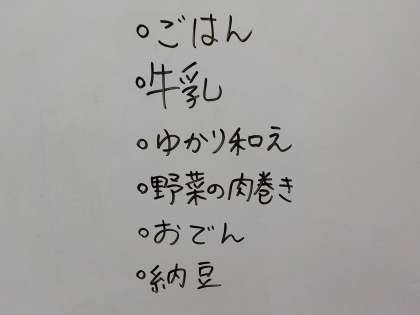 ○ごはん
○牛乳
○ゆかり和え
○野菜の肉巻き
○おでん
○納豆